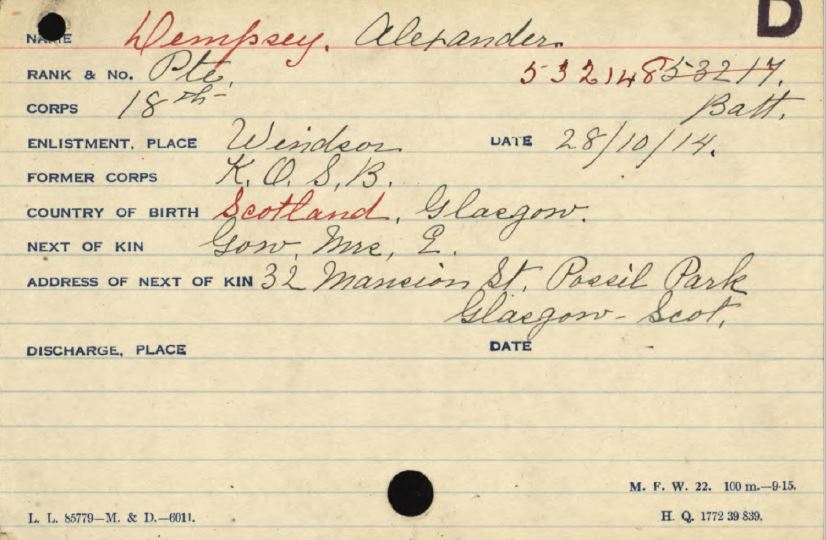 D
NAME Dempsey, Alexander.
RANK & No. Pte. 532148 53217.
CORPS 18th Batt.
ENLISTMENT, PLACE Windsor DATE 28/10/14.
FORMER CORPS K.O.S.B.
COUNTRY OF BIRTH Scotland, Glasgow.
NEXT OF KIN Gow, Mrs, E.
ADDRESS OF NEXT OF KIN 32 Mansion St. Possil Park
Glasgow - Scot.
DISCHARGE, PLACE DATE -
M. F. W. 22. 100 m.—9-15.
L. L. 85779—M. & D.—6011. H. Q. 1772 39 839.